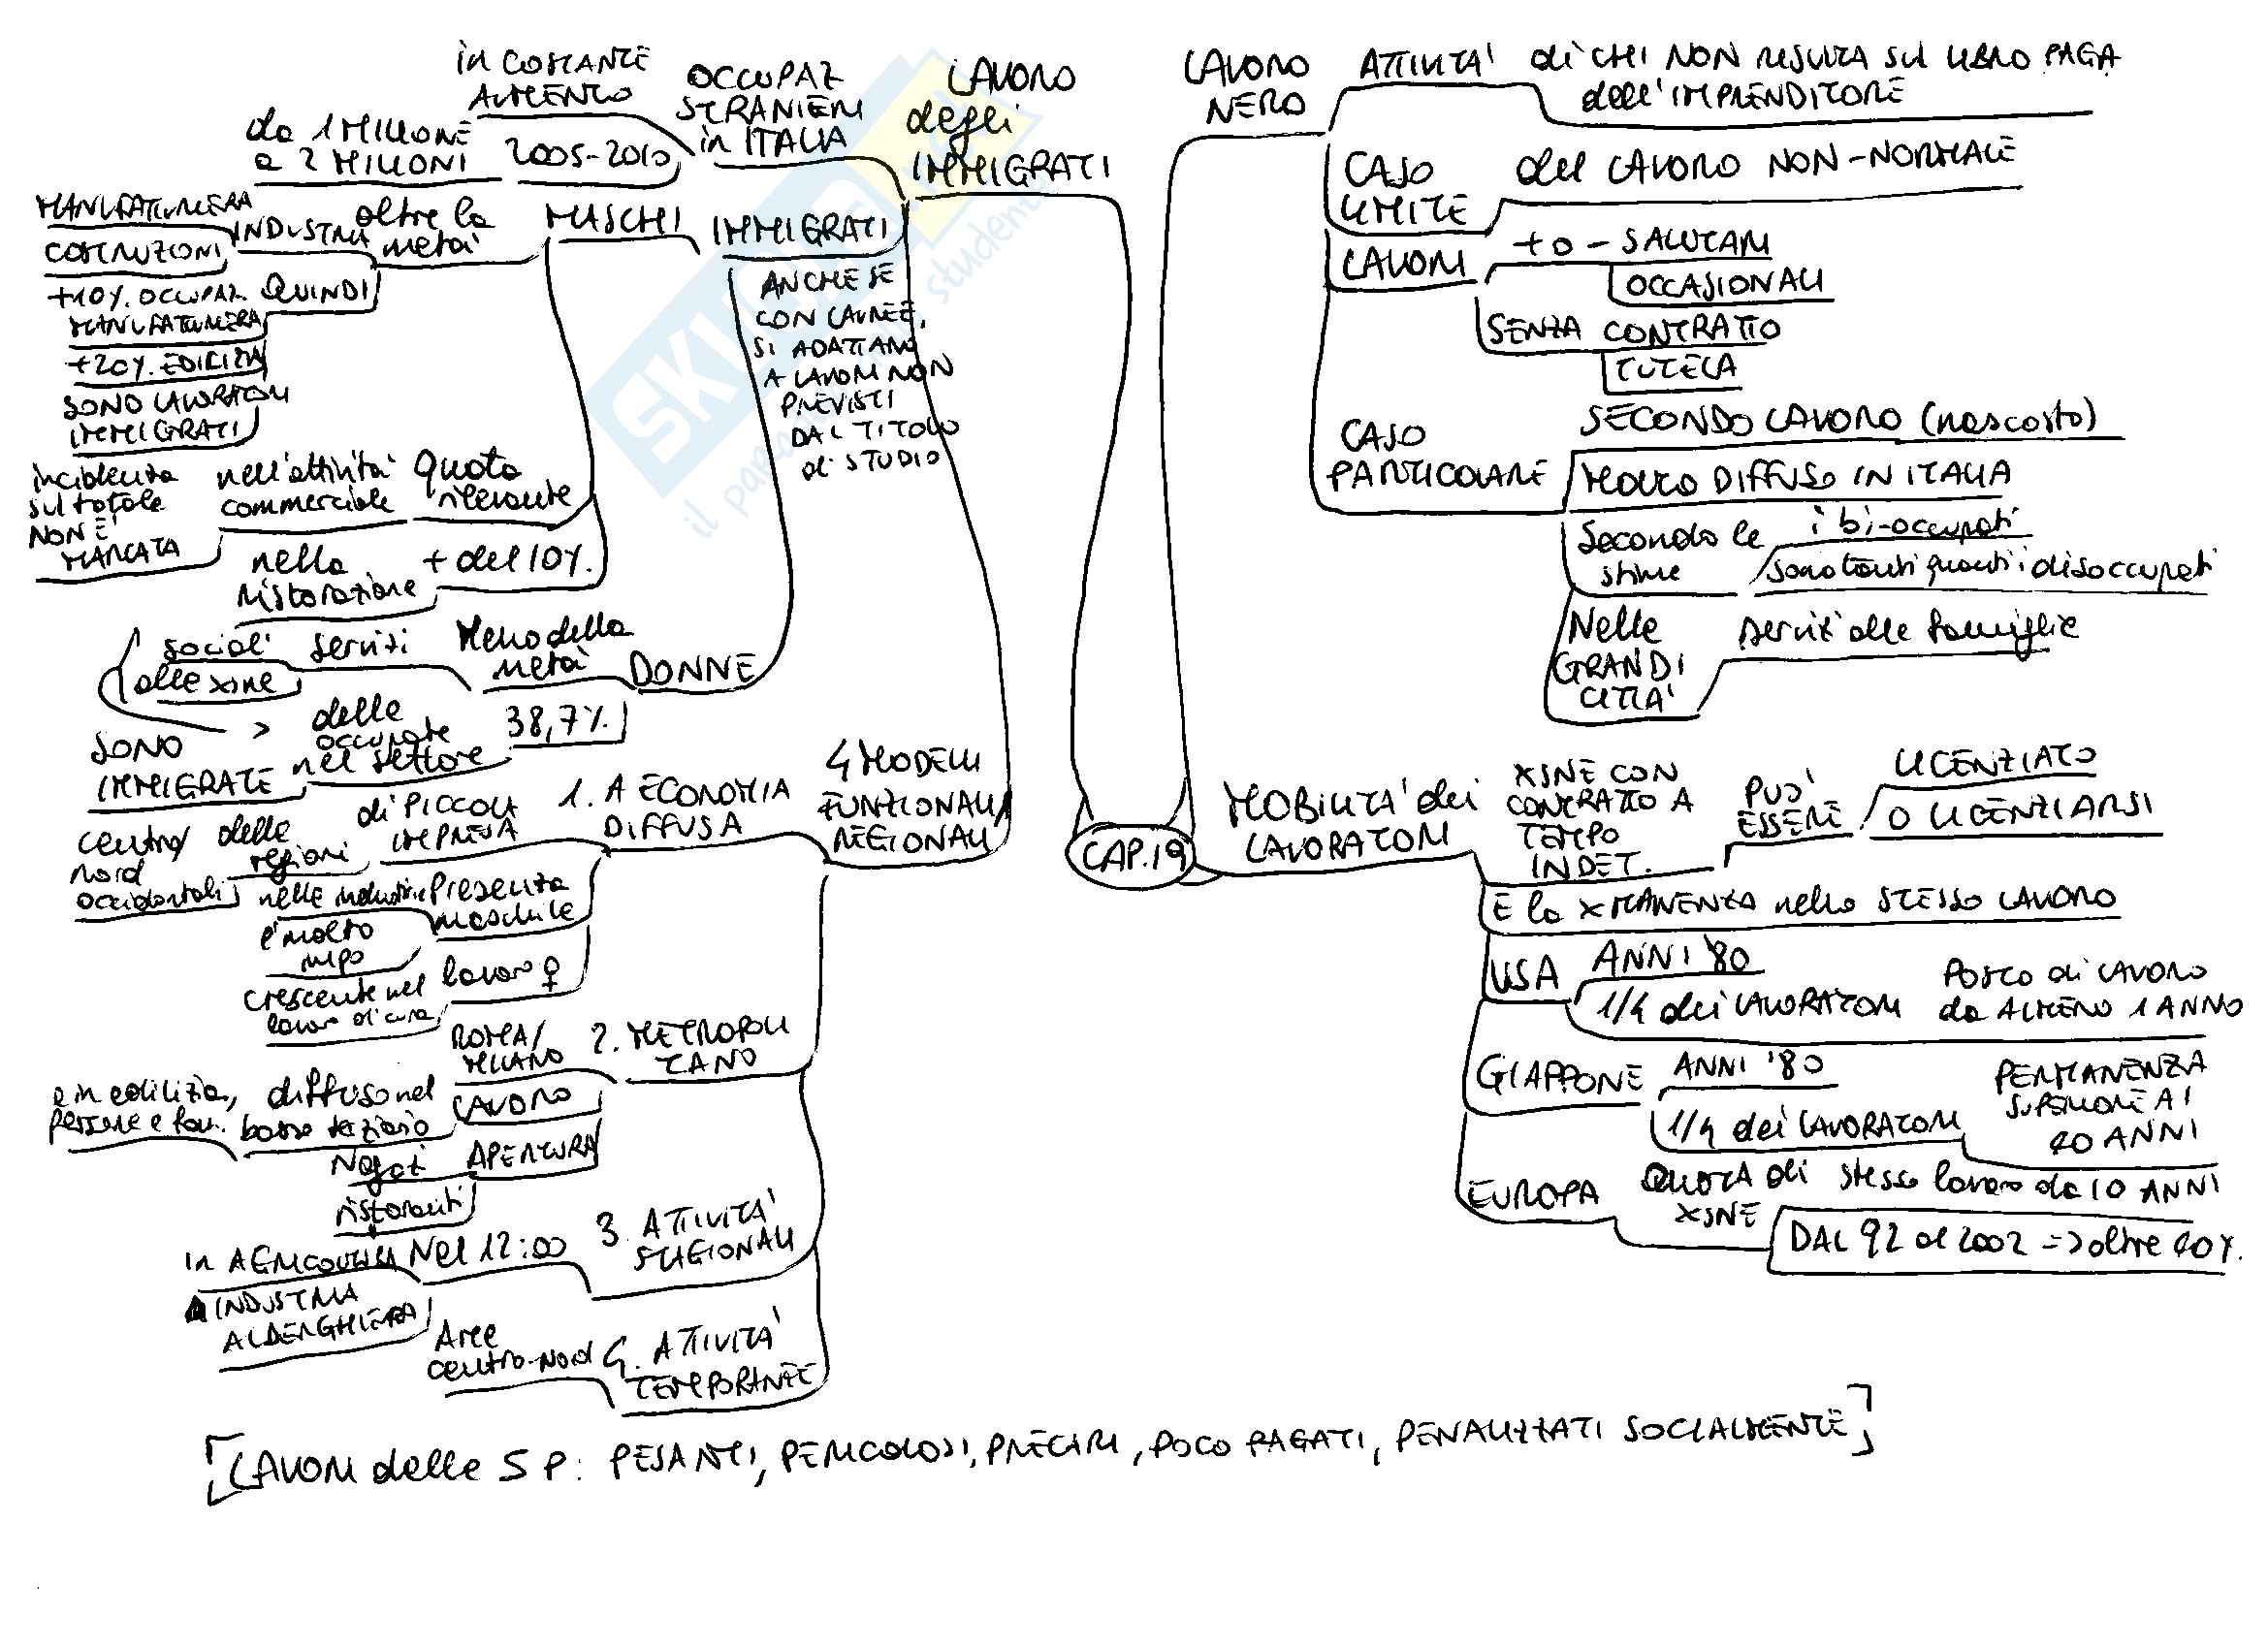 CAP.19
LAVORO
NERO
ATTIVITA' di CHI NON RISULTA SUL LIBRO PAGA
dell'IMPRENDITORE
CASO
LIMITE
del LAVORO NON-NORMALE
LAVORI
+ o - SALUTARI
OCCASIONALI
SENZA CONTRATTO
TUTELA
CASO
PARTICOLARE
SECONDO LAVORO (nascosto)
MOLTO DIFFUSO IN ITALIA
Secondo le
stime
i bi-occupati
sono tanti quanti i disoccupati
Nelle
GRANDI
CITTA'
servizi alle famiglie
MOBILITA' dei
LAVORATORI
XSNE CON
CONTRATTO A
TEMPO
INDET.
PUO'
ESSERE
LICENZIATO
O LICENZIARSI
E la XMANENZA nello STESSO LAVORO
USA
ANNI '80
1/4 dei LAVORATORI
POSTO di LAVORO
da ALMENO 1 ANNO
GIAPPONE
ANNI '80
1/4 dei LAVORATORI
PERMANENZA
SUPERIORE AI
20 ANNI
EUROPA
QUOTA di
XSNE
stesso lavoro da 10 ANNI
DAL 92 al 2002 => oltre 40%.
LAVORO
degli
IMMIGRATI
OCCUPAZ
STRANIERI
in ITALIA
in COSTANTE
AUMENTO
2005-2010
da 1 MILIONE
a 2 MILIONI
IMMIGRATI
ANCHE SE
CON LAUREE,
SI ADATTANO
A LAVORI NON
PREVISTI
DAL TITOLO
di STUDIO
MASCHI
oltre la
metà
INDUSTRIA
MANUFATTURIERA
COSTRUZIONI
QUINDI
+10%. OCCUPAZ.
MANUFATTURIERA
+20%. EDILIZIA
SONO LAVORATORI
IMMIGRATI
quota
rilevante
nell'attività
commerciale
incidenza
sul totale
NON E'
MARCATA
+ del 10%.
nella
ristorazione
DONNE
Meno della
metà
servizi
sociali
alle xsone
38,7%.
delle
occupate
nel settore
>
SONO
IMMIGRATE
4 MODELLI
FUNZIONALI/
REGIONALI
1. A ECONOMIA
DIFFUSA
di PICCOLA
IMPRESA
delle
regioni
centro/
nord
occidentali
Presenza
maschile
nelle industrie
e molto
lavoro ♀
crescente nel
lavoro di cura
2. METROPOLI
TANO
ROMA/
MILANO
LAVORO
diffuso nel
basso terziario
e in edilizia,
APERTURA
Negozi
ristoranti
3. ATTIVITA'
STAGIONALI
Nel 12:00
in AGRICOLTURA
INDUSTRIA
ALBERGHIERA
4. ATTIVITA'
TEMPORANEE
Aree
centro-nord
[LAVORI delle 5 P: PESANTI, PERICOLOSI, PRECARI, POCO PAGATI, PENALIZZATI SOCIALMENTE]